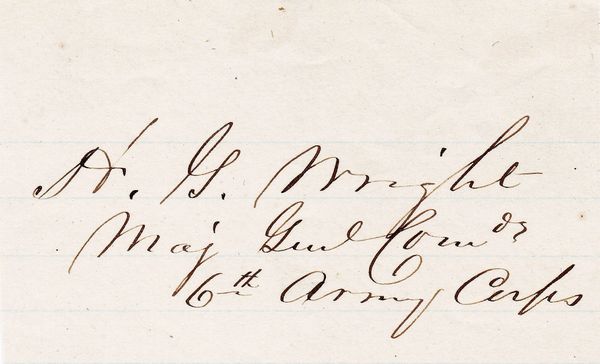 H. G. Wright
Maj Genl Comdg
6th Army Corps